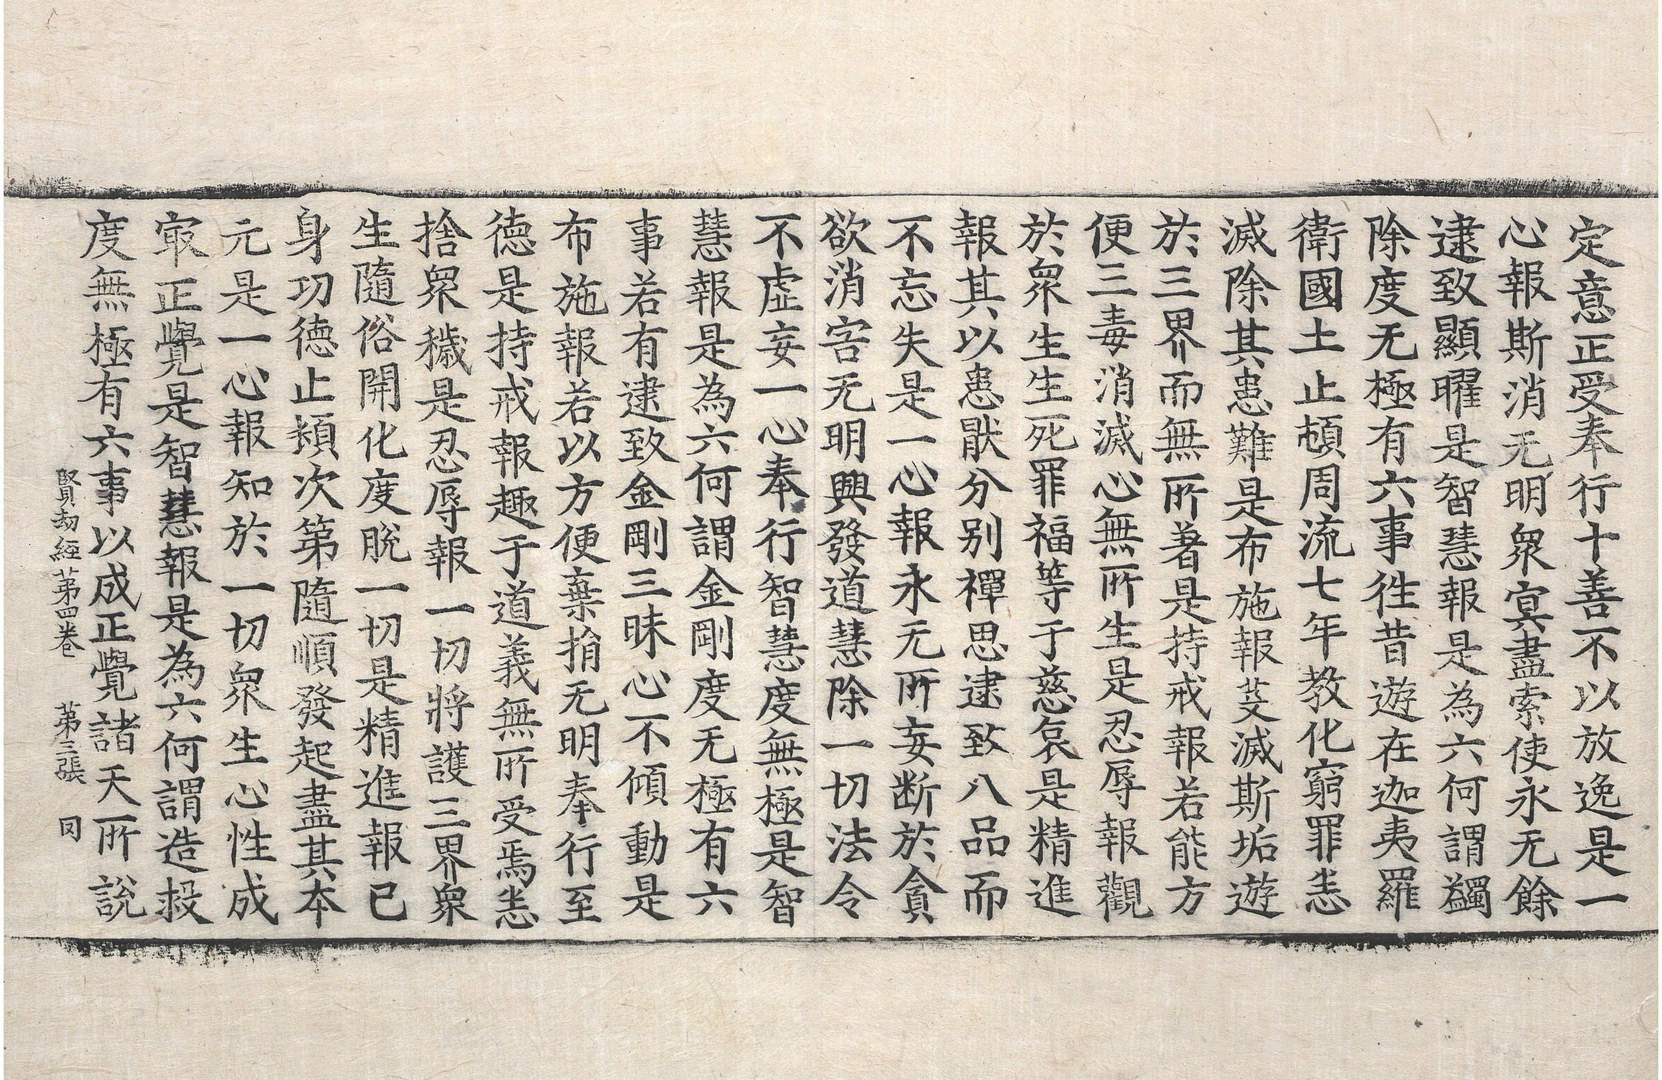 定意正受奉行十善不以放逸是一
心報斯消无明衆冥盡索使永无餘
逮致顯曜是智慧報是為六何謂蠲
除度无極有六事徃昔遊在迦夷羅
衛國土止頓周流七年教化窮罪恙
滅除其患難是布施報芟滅斯垢遊
於三界而無所著是持戒報若能方
便三毒消滅心無所生是忍辱報觀
於衆生生死罪福等于慈哀是精進
報其以患猒分别禪思逮致八品而
不忘失是一心報永无所妄断於貪
欲消害无明興發道慧除一切法令
不虚妄一心奉行智慧度無極是智
慧報是為六何謂金剛度无極有六
事若有逮致金剛三昧心不傾動是
布施報若以方便棄捐无明奉行至
徳是持戒報趣于道義無所受焉恙
捨衆穢是忍辱報一切將護三界衆
生隨俗開化度脫一切是精進報已
身功徳止頬次第隨順發起盡其本
元是一心報知於一切衆生心性成
㝡正覺是智慧報是為六何謂造投
度無極有六事以成正覺諸天所說
賢劫經第四卷 第三張 同